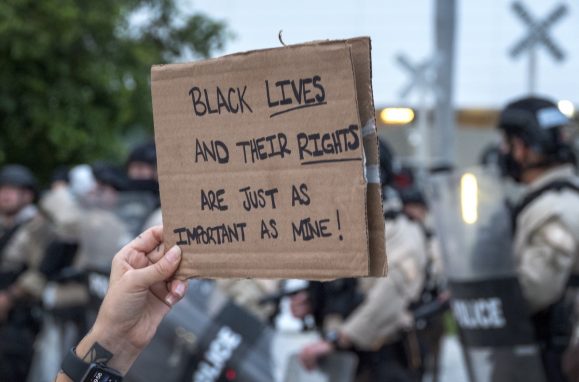 BLACK LIVES
AND THEIR RIGHTS
ARE JUST AS
IMPORTANT AS MINE!
POLICE